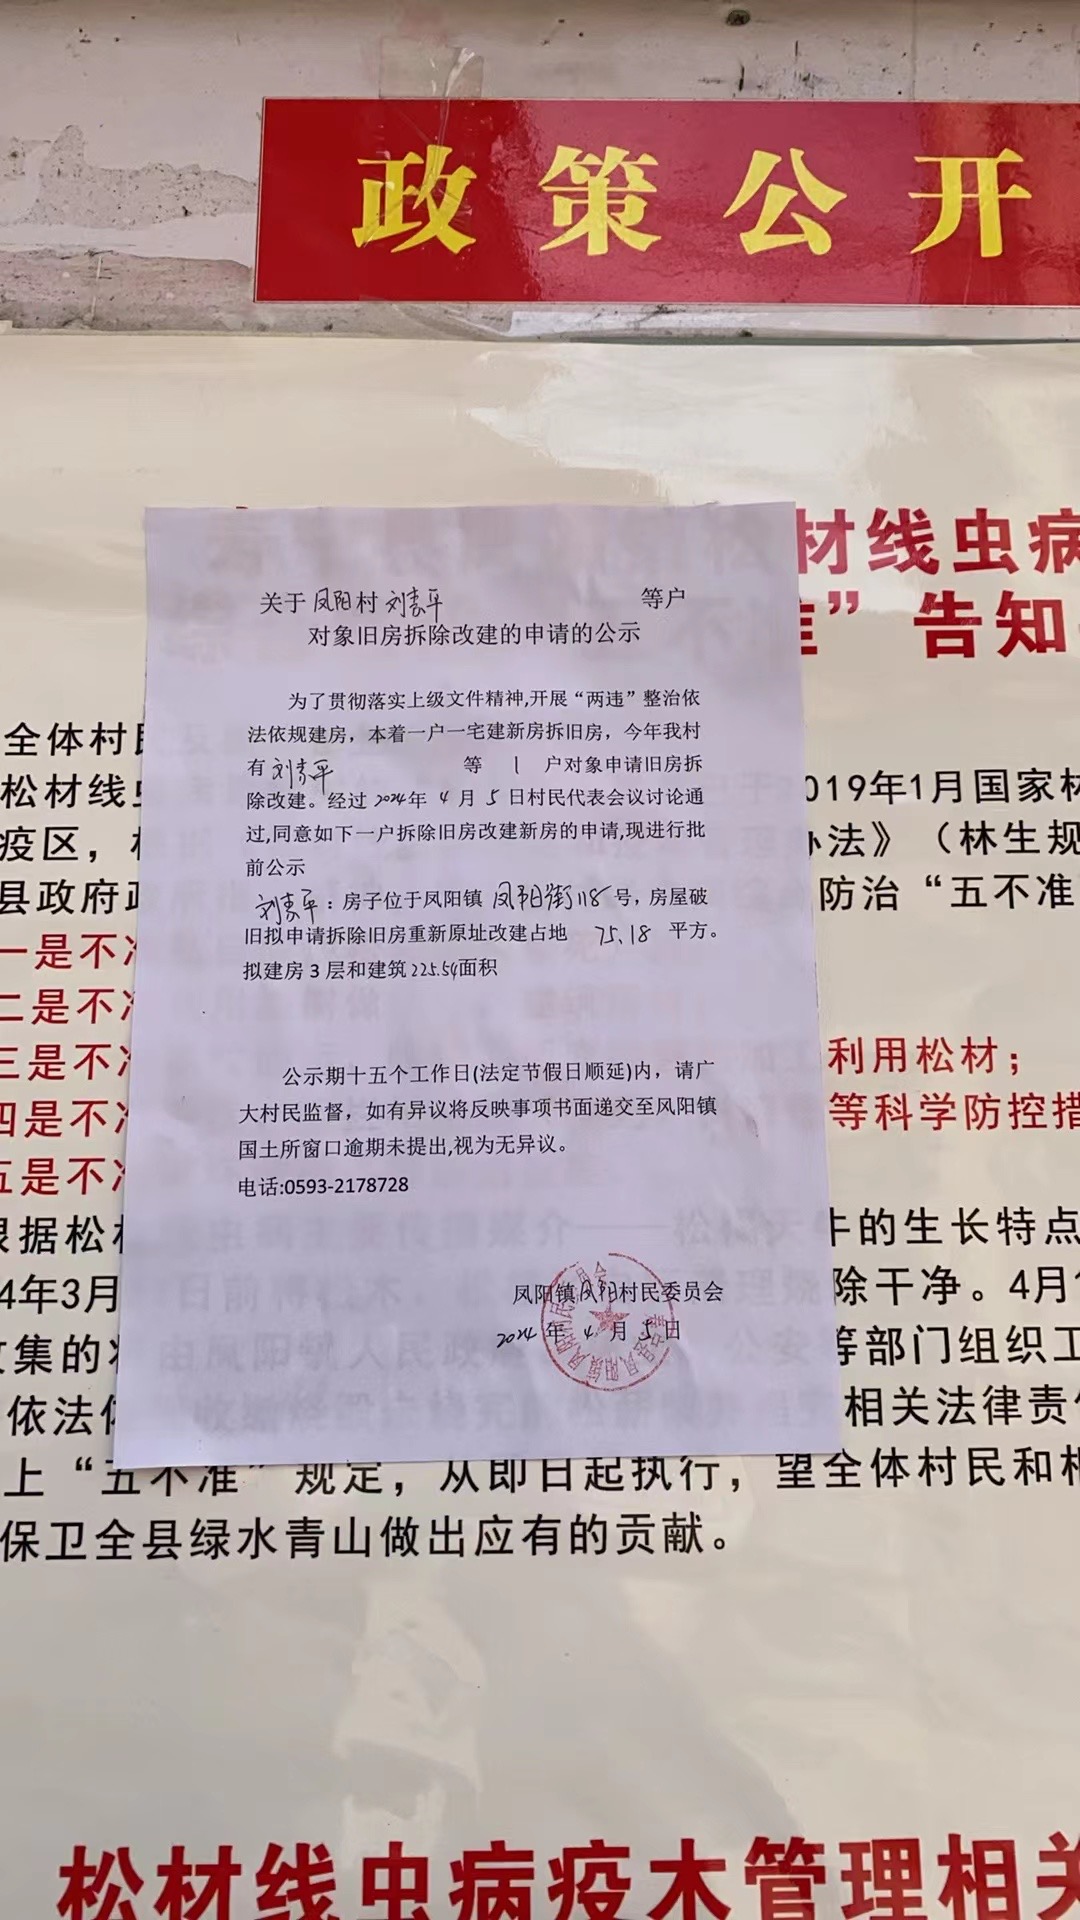 政策公开
材线虫病
”告知
关于凤阳村 刘青平 等户
对象旧房拆除改建的申请的公示
为了贯彻落实上级文件精神,开展“两违”整治依
法依规建房，本着一户一宅建新房拆旧房，今年我村
有刘青平 等 1 户对象申请旧房拆
除改建。经过2024年4月5日村民代表会议讨论通
过,同意如下一户拆除旧房改建新房的申请,现进行批
前公示
刘青平：房子位于凤阳镇 凤阳街118号，房屋破
旧拟申请拆除旧房重新原址改建占地 75.18 平方。
拟建房3层和建筑225.54面积
公示期十五个工作日(法定节假日顺延)内，请广
大村民监督，如有异议将反映事项书面递交至凤阳镇
国土所窗口逾期未提出,视为无异议。
电话:0593-2178728
凤阳镇凤阳村民委员会
2024年4月5日
全体村民
松材线 019年1月国家林
疫区， 办法》（林生规
县政府 防治“五不准
一是不准
二是不准
三是不准 利用松材；
四是不准 等科学防控措
五是不准
根据松材 牛的生长特点
4年3月 除干净。4月1
收集的 等部门组织工
依法依 相关法律责任
上“五不准”规定，从即日起执行，望全体村民和相
保卫全县绿水青山做出应有的贡献。
松材线虫病疫木管理相关